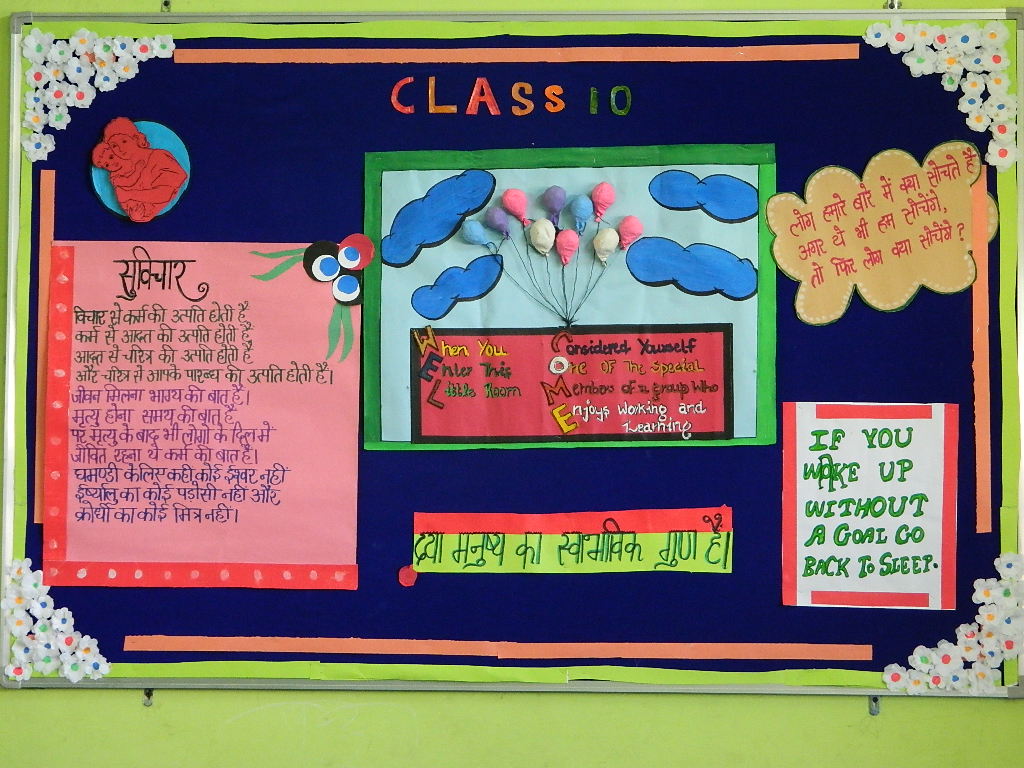 CLASS 10
सुविचार
विचार से कर्म की उत्पति होती है,
कर्म से आदत की उत्पति होती है,
आदत से चरित्र की उत्पति होती है
और चरित्र से आपके प्रारब्ध की उत्पति होती है।
जीवन मिलना भाग्य की बात है।
मृत्यु होना समय की बात है
पर मृत्यु के बाद भी लोगों के दिल में
जीवित रहना ये कर्म की बात है।
घमण्डी के लिए कही कोई ईश्वर नहीं
ईर्ष्यालु का कोई पडोसी नही और
क्रोधी का कोई मित्र नहीं।
When You
Enter This
Little Room
Considered Yourself
One Of The Special
Members of a group Who
Enjoys Working and
Learning
लोग हमारे बारे में क्या सोचते है
अगर ये भी हम सोचेंगे,
तो फिर लोग क्या सोचेंगे ?
दया मनुष्य का स्वाभाविक गुण है।
IF YOU
WOKE UP
WITHOUT
A GOAL GO
BACK TO SLEEP.